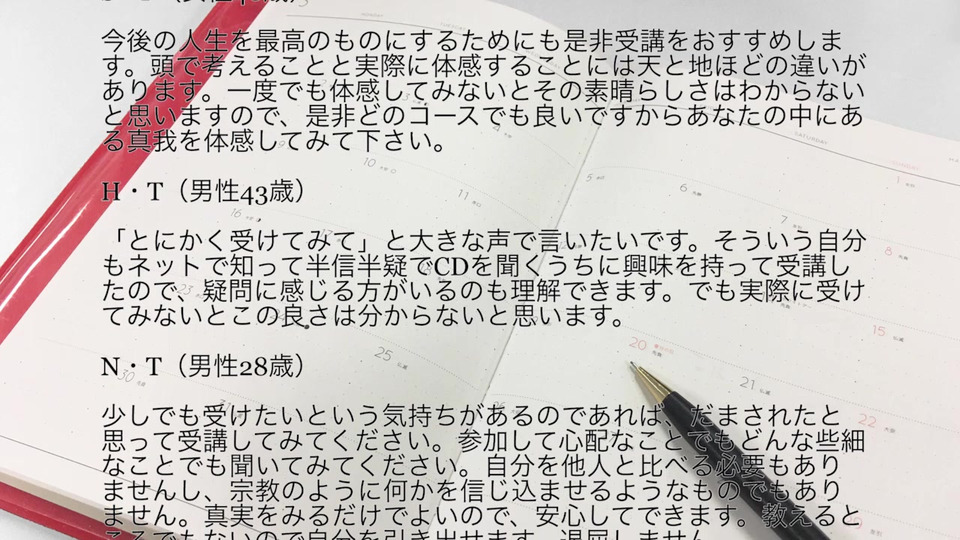 今後の人生を最高のものにするためにも是非受講をおすすめしま
す。頭で考えることと実際に体感することには天と地ほどの違いが
あります。一度でも体感してみないとその素晴らしさはわからない
と思いますので、是非どのコースでも良いですからあなたの中にあ
る真我を体感してみて下さい。
H・T（男性43歳）
「とにかく受けてみて」と大きな声で言いたいです。そういう自分
もネットで知って半信半疑でCDを聞くうちに興味を持って受講し
たので、疑問に感じる方がいるのも理解できます。でも実際に受け
てみないとこの良さは分からないと思います。
N・T（男性28歳）
少しでも受けたいという気持ちがあるのであれば、だまされたと
思って受講してみてください。参加して心配なことでもどんな些細
なことでも聞いてみてください。自分を他人と比べる必要もあり
ませんし、宗教のように何かを信じ込ませるようなものでもあり
ません。真実をみるだけでよいので、安心してできます。教えると
ころでもないので自分を引き出せます。退屈しません。
SUNDAY
TUESDAY
SATURDAY
4
5
6
7
8
9
10
11
15
16
17
20
21
22
23
25
26
30
31